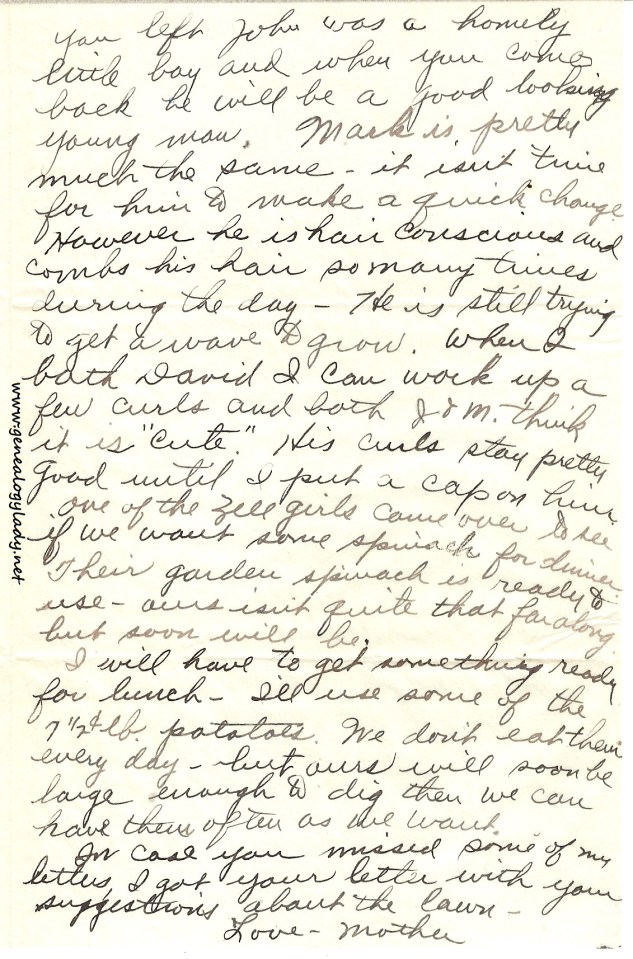 you left John was a homely
little boy and when you come
back he will be a good looking
young man. Mark is pretty
much the same - it isn't time
for him to make a quick change.
However he is hair conscious and
combs his hair so many times
during the day - He is still trying
to get a wave to grow. When I
bath David I can work up a
few curls and both J & M. think
it is "cute." His curls stay pretty
good until I put a cap on him.
One of the Zell girls came over to see
if we want some spinach for dinner
Their garden spinach is ready to
use - ours isn't quite that far along
but soon will be.
I will have to get something ready
for lunch - I'll use some of the
7 1/2¢ lb. potatoes. We don't eat them
every day - but ours will soon be
large enough to dig then we can
have them often as we want.
In case you missed some of my
letters, I got your letter with your
suggestions about the lawn -
Love - Mother
www.genealogylady.net